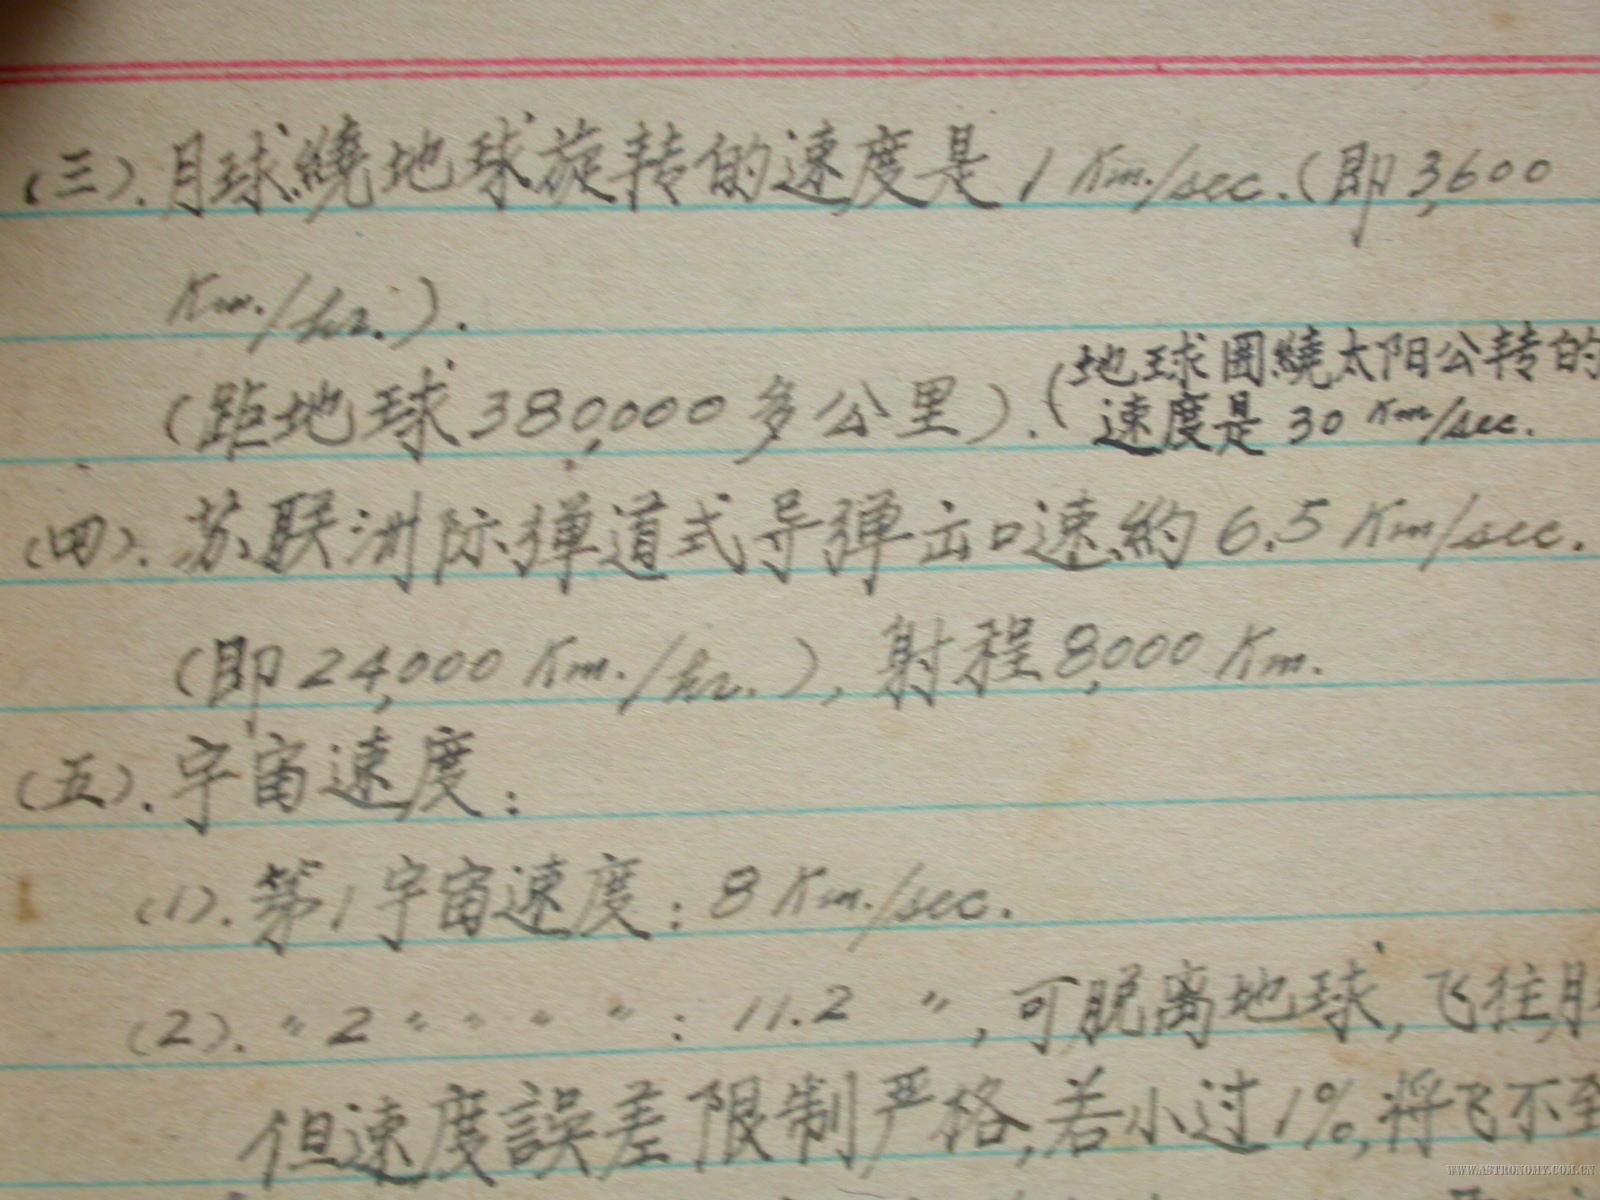 (三). 月球繞地球旋转的速度是 1 Km./sec. (即 3,600
Km./hr.).
(距地球 380,000 多公里). (地球囲繞太阳公转的
速度是 30 Km/sec.
(四). 苏联洲际弹道式导弹出口速約 6.5 Km/sec.
(即 24,000 Km./hr.), 射程 8,000 Km.
(五). 宇宙速度:
(1). 第1宇宙速度: 8 Km./sec.
(2). 〃 2 〃 〃 〃 〃 : 11.2 〃, 可脱离地球, 飞往月
但速度誤差限制严格, 若小过1%, 将飞不至
WWW.ASTRONOMY.COM.CN